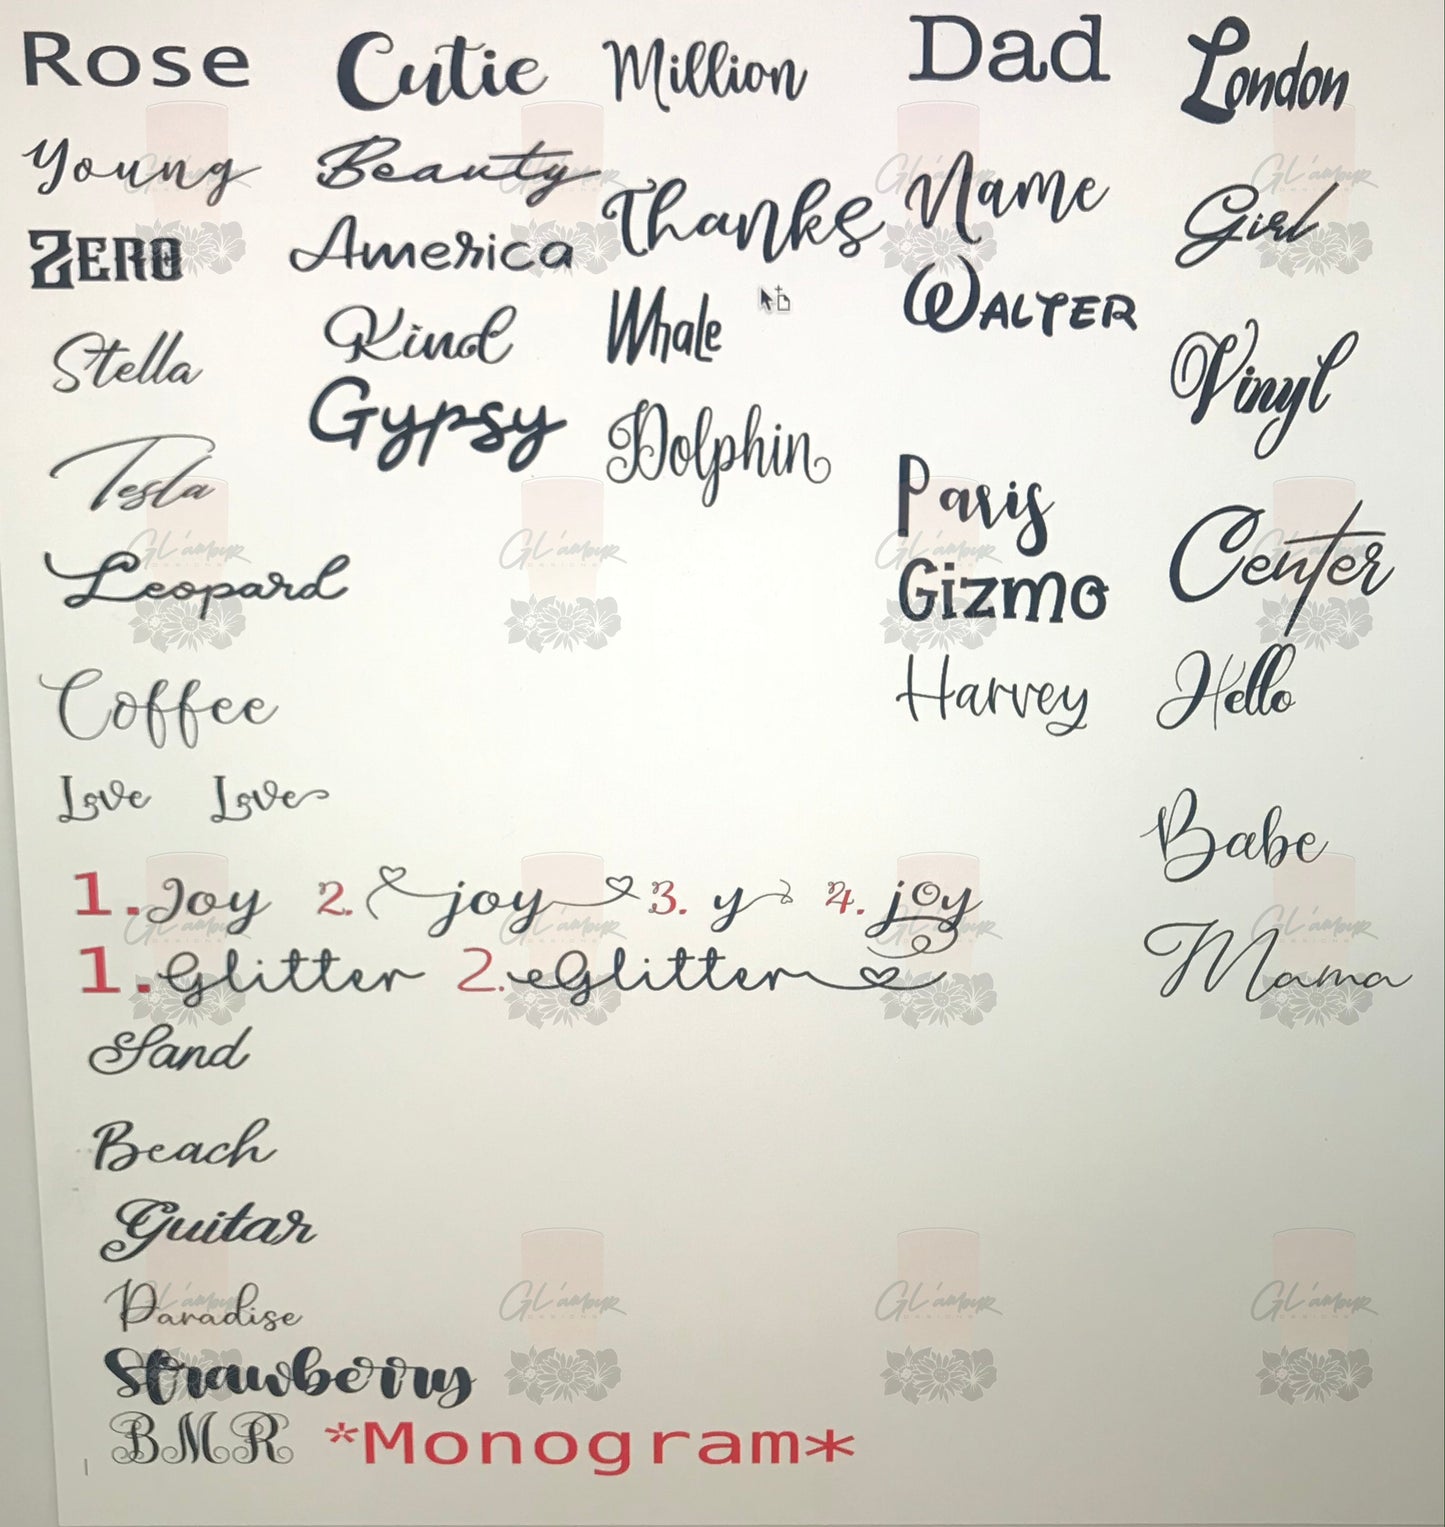 Rose
Young
ZERO
Stella
Tesla
Leopard
Coffee
Love Love
Cutie
Beauty
America
Kind
Gypsy
Million
Thanks
Whale
Dolphin
Dad
Name
WALTER
Paris
Gizmo
Harvey
London
Girl
Vinyl
Center
Hello
Babe
Mama
1. Joy 2. joy 3. y 4. joy
1. Glitter 2. Glitter
Sand
Beach
Guitar
Paradise
Strawberry
BMR *Monogram*
GL'amour
DESIGNS
GL'amour
DESIGNS
GL'amour
DESIGNS
GL'amour
DESIGNS